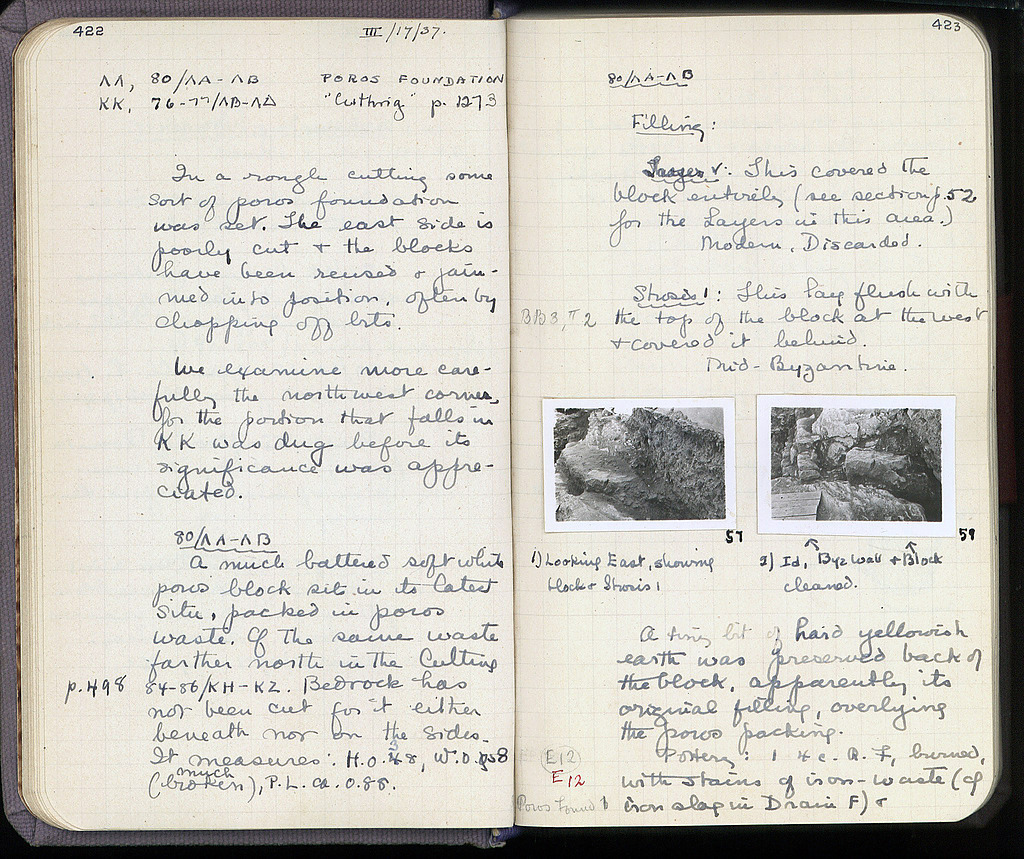 422
III/17/37.
ΛΛ, 80/ΛA-ΛB POROS FOUNDATION
KK, 76-77/ΛB-ΛΔ "Cutting" p. 1273
In a rough cutting some
sort of poros foundation
was set. The east side is
poorly cut + the blocks
have been reused & jam-
med into position, often by
chopping off bits.
We examine more care-
fully the northwest corner,
for the portion that falls in
KK was dug before its
significance was appre-
ciated.
80/ΛA-ΛB
A much battered soft white
poros block sits in its latest
situ, packed in poros
waste. Cf the same waste
farther north in the Cutting
p.498 84-86/KH-KZ. Bedrock has
not been cut for it either
beneath nor on the sides.
It measures: H.0.48, W.0.58
much
(broken), P.L. ca. 0.88.
423
80/ΛA-ΛB
Filling:
Layer V: This covered the
block entirely (see section p.52
for the Layers in this area.)
Modern. Discarded.
Strosis 1: This lay flush with
BB3, T2 the top of the block at the west
+ covered it behind.
Mid-Byzantine.
57
59
1) Looking East, showing
block & Strosis 1
2) Id, Byz wall + Block
cleaned.
A tiny bit of hard yellowish
earth was preserved back of
the block, apparently its
original filling, overlying
the poros packing.
E12
Pottery: 1 4c. R.F., burned,
E12
with stains of iron-waste (cf
Poros Found 1
iron slag in Drain F) &